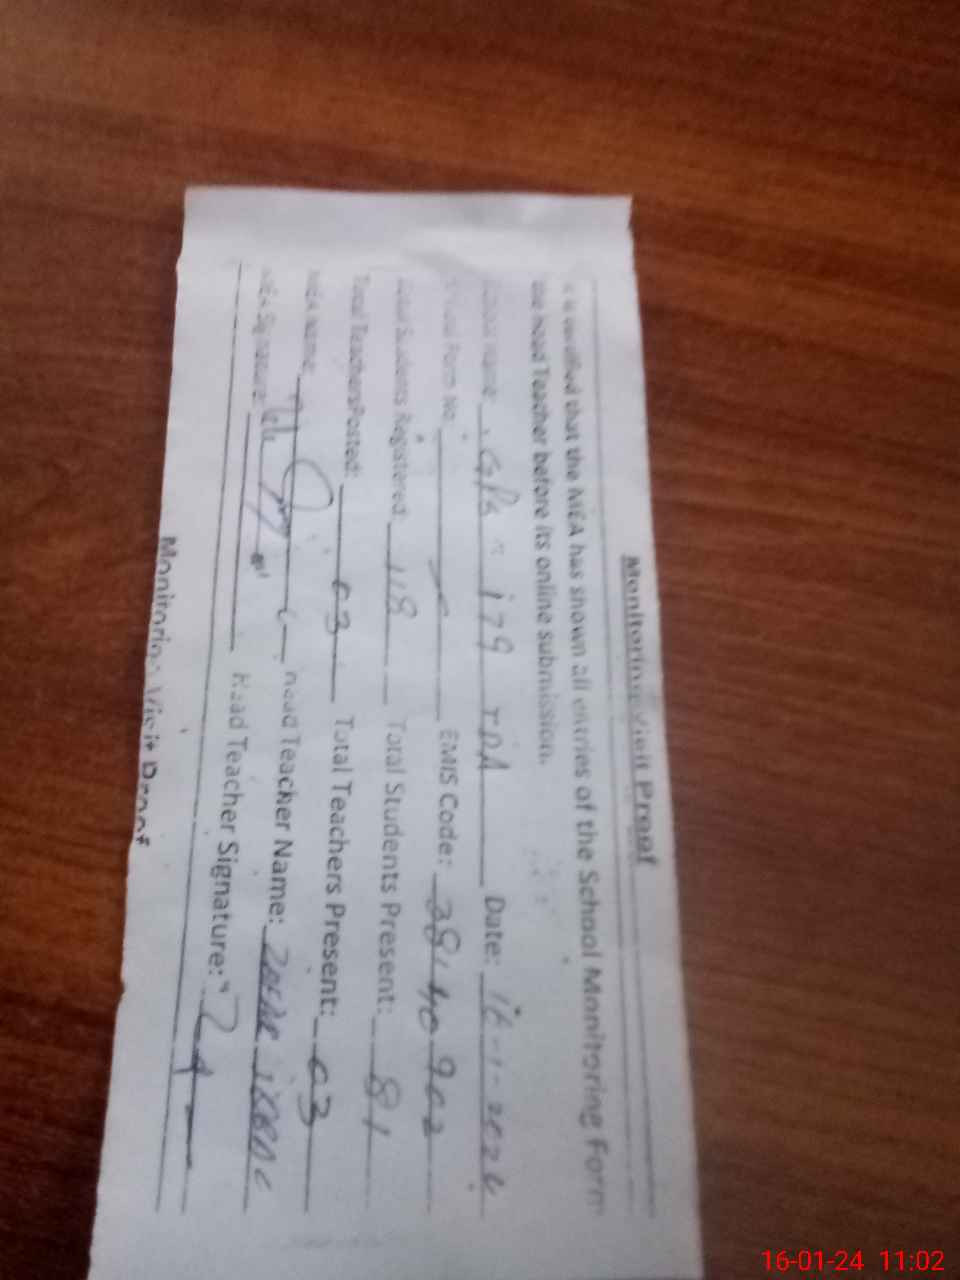 Monitoring Visit Proof
It is certified that the MEA has shown all entries of the School Monitoring Form
the head Teacher before its online submission.
School name GPS 179 TDA Date: 16-1-2024
Virtual Form No: EMIS Code: 38140902
Total Students Registered: 118 Total Students Present: 81
Total Teachers Posted: 03 Total Teachers Present: 03
MEA name: Head Teacher Name: Zafar Iqbal
MEA Signature: Head Teacher Signature:
Monitoring Visit Proof
16-01-24 11:02